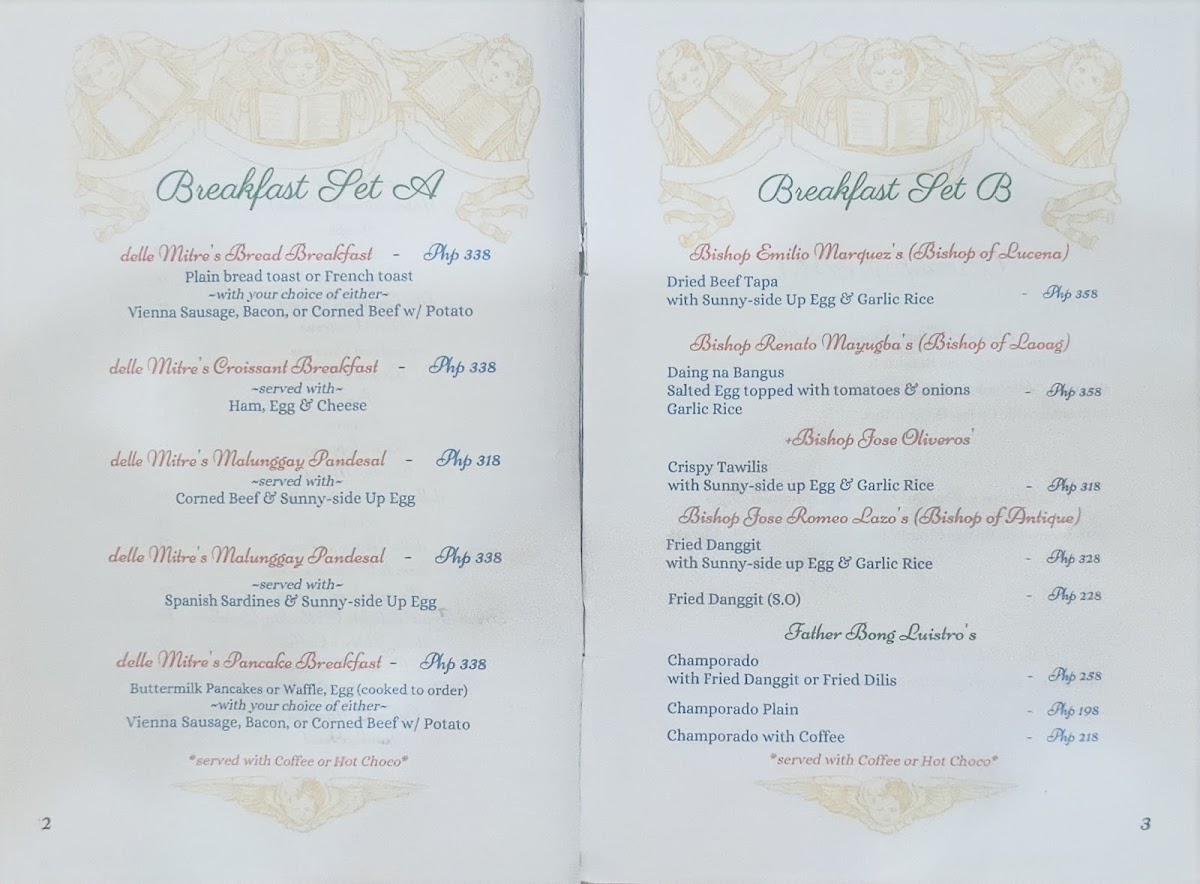 Breakfast Set A
delle Mitre's Bread Breakfast - Php 338
Plain bread toast or French toast
~with your choice of either~
Vienna Sausage, Bacon, or Corned Beef w/ Potato
delle Mitre's Croissant Breakfast - Php 338
~served with~
Ham, Egg & Cheese
delle Mitre's Malunggay Pandesal - Php 318
~served with~
Corned Beef & Sunny-side Up Egg
delle Mitre's Malunggay Pandesal - Php 338
~served with~
Spanish Sardines & Sunny-side Up Egg
delle Mitre's Pancake Breakfast - Php 338
Buttermilk Pancakes or Waffle, Egg (cooked to order)
~with your choice of either~
Vienna Sausage, Bacon, or Corned Beef w/ Potato
*served with Coffee or Hot Choco*
2
Breakfast Set B
Bishop Emilio Marquez's (Bishop of Lucena)
Dried Beef Tapa
with Sunny-side Up Egg & Garlic Rice - Php 358
Bishop Renato Mayugba's (Bishop of Laoag)
Daing na Bangus
Salted Egg topped with tomatoes & onions - Php 358
Garlic Rice
+Bishop Jose Oliveros'
Crispy Tawilis
with Sunny-side up Egg & Garlic Rice - Php 318
Bishop Jose Romeo Lazo's (Bishop of Antique)
Fried Danggit
with Sunny-side up Egg & Garlic Rice - Php 328
Fried Danggit (S.O) - Php 228
Father Bong Luistro's
Champorado
with Fried Danggit or Fried Dilis - Php 258
Champorado Plain - Php 198
Champorado with Coffee - Php 218
*served with Coffee or Hot Choco*
3